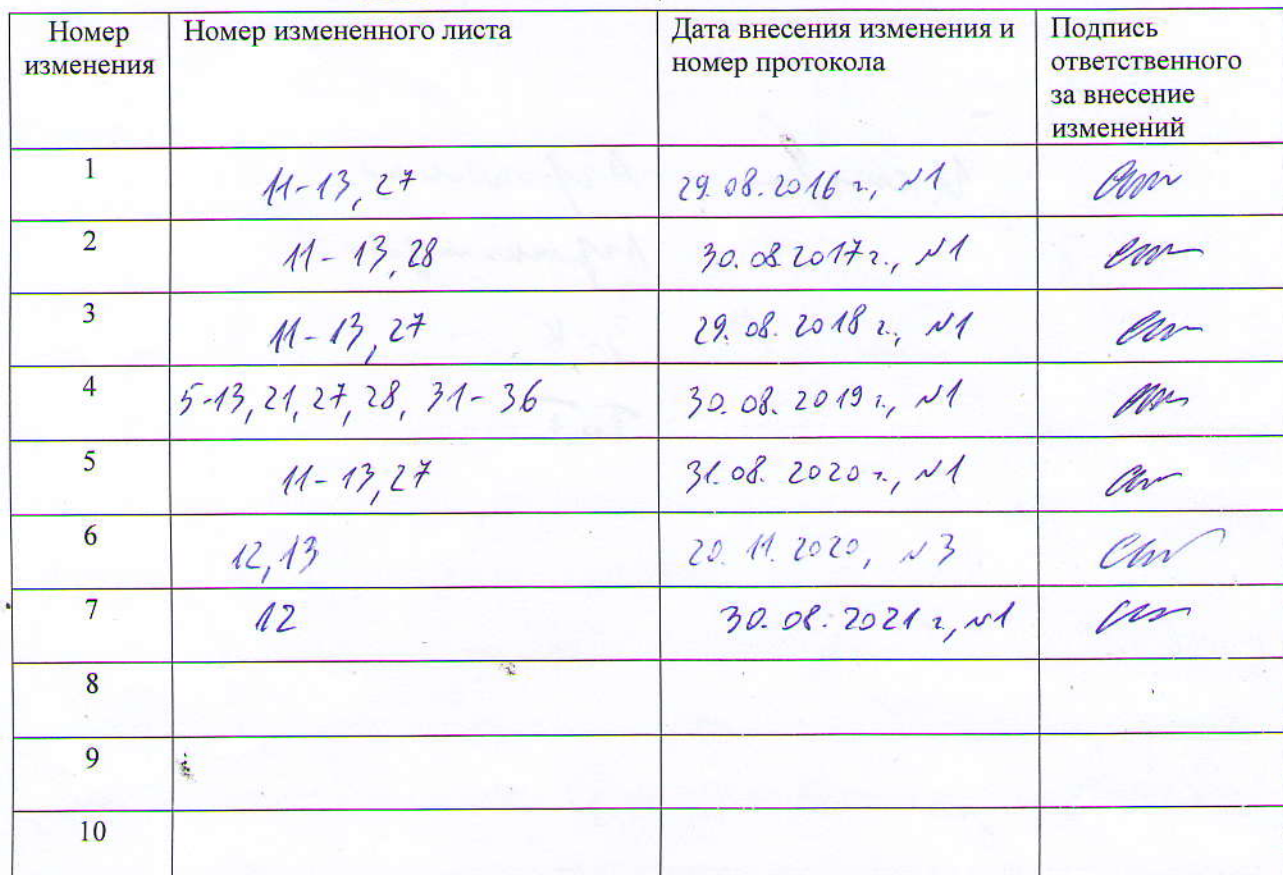 Номер изменения | Номер измененного листа | Дата внесения изменения и номер протокола | Подпись ответственного за внесение изменений
1 | 11-13, 27 | 29.08.2016 г., №1
2 | 11-13, 28 | 30.08.2017 г., №1
3 | 11-13, 27 | 29.08.2018 г., №1
4 | 5-13, 21, 27, 28, 31-36 | 30.08.2019 г., №1
5 | 11-13, 27 | 31.08.2020 г., №1
6 | 12, 13 | 20.11.2020, №3
7 | 12 | 30.08.2021 г., №1
8
9
10